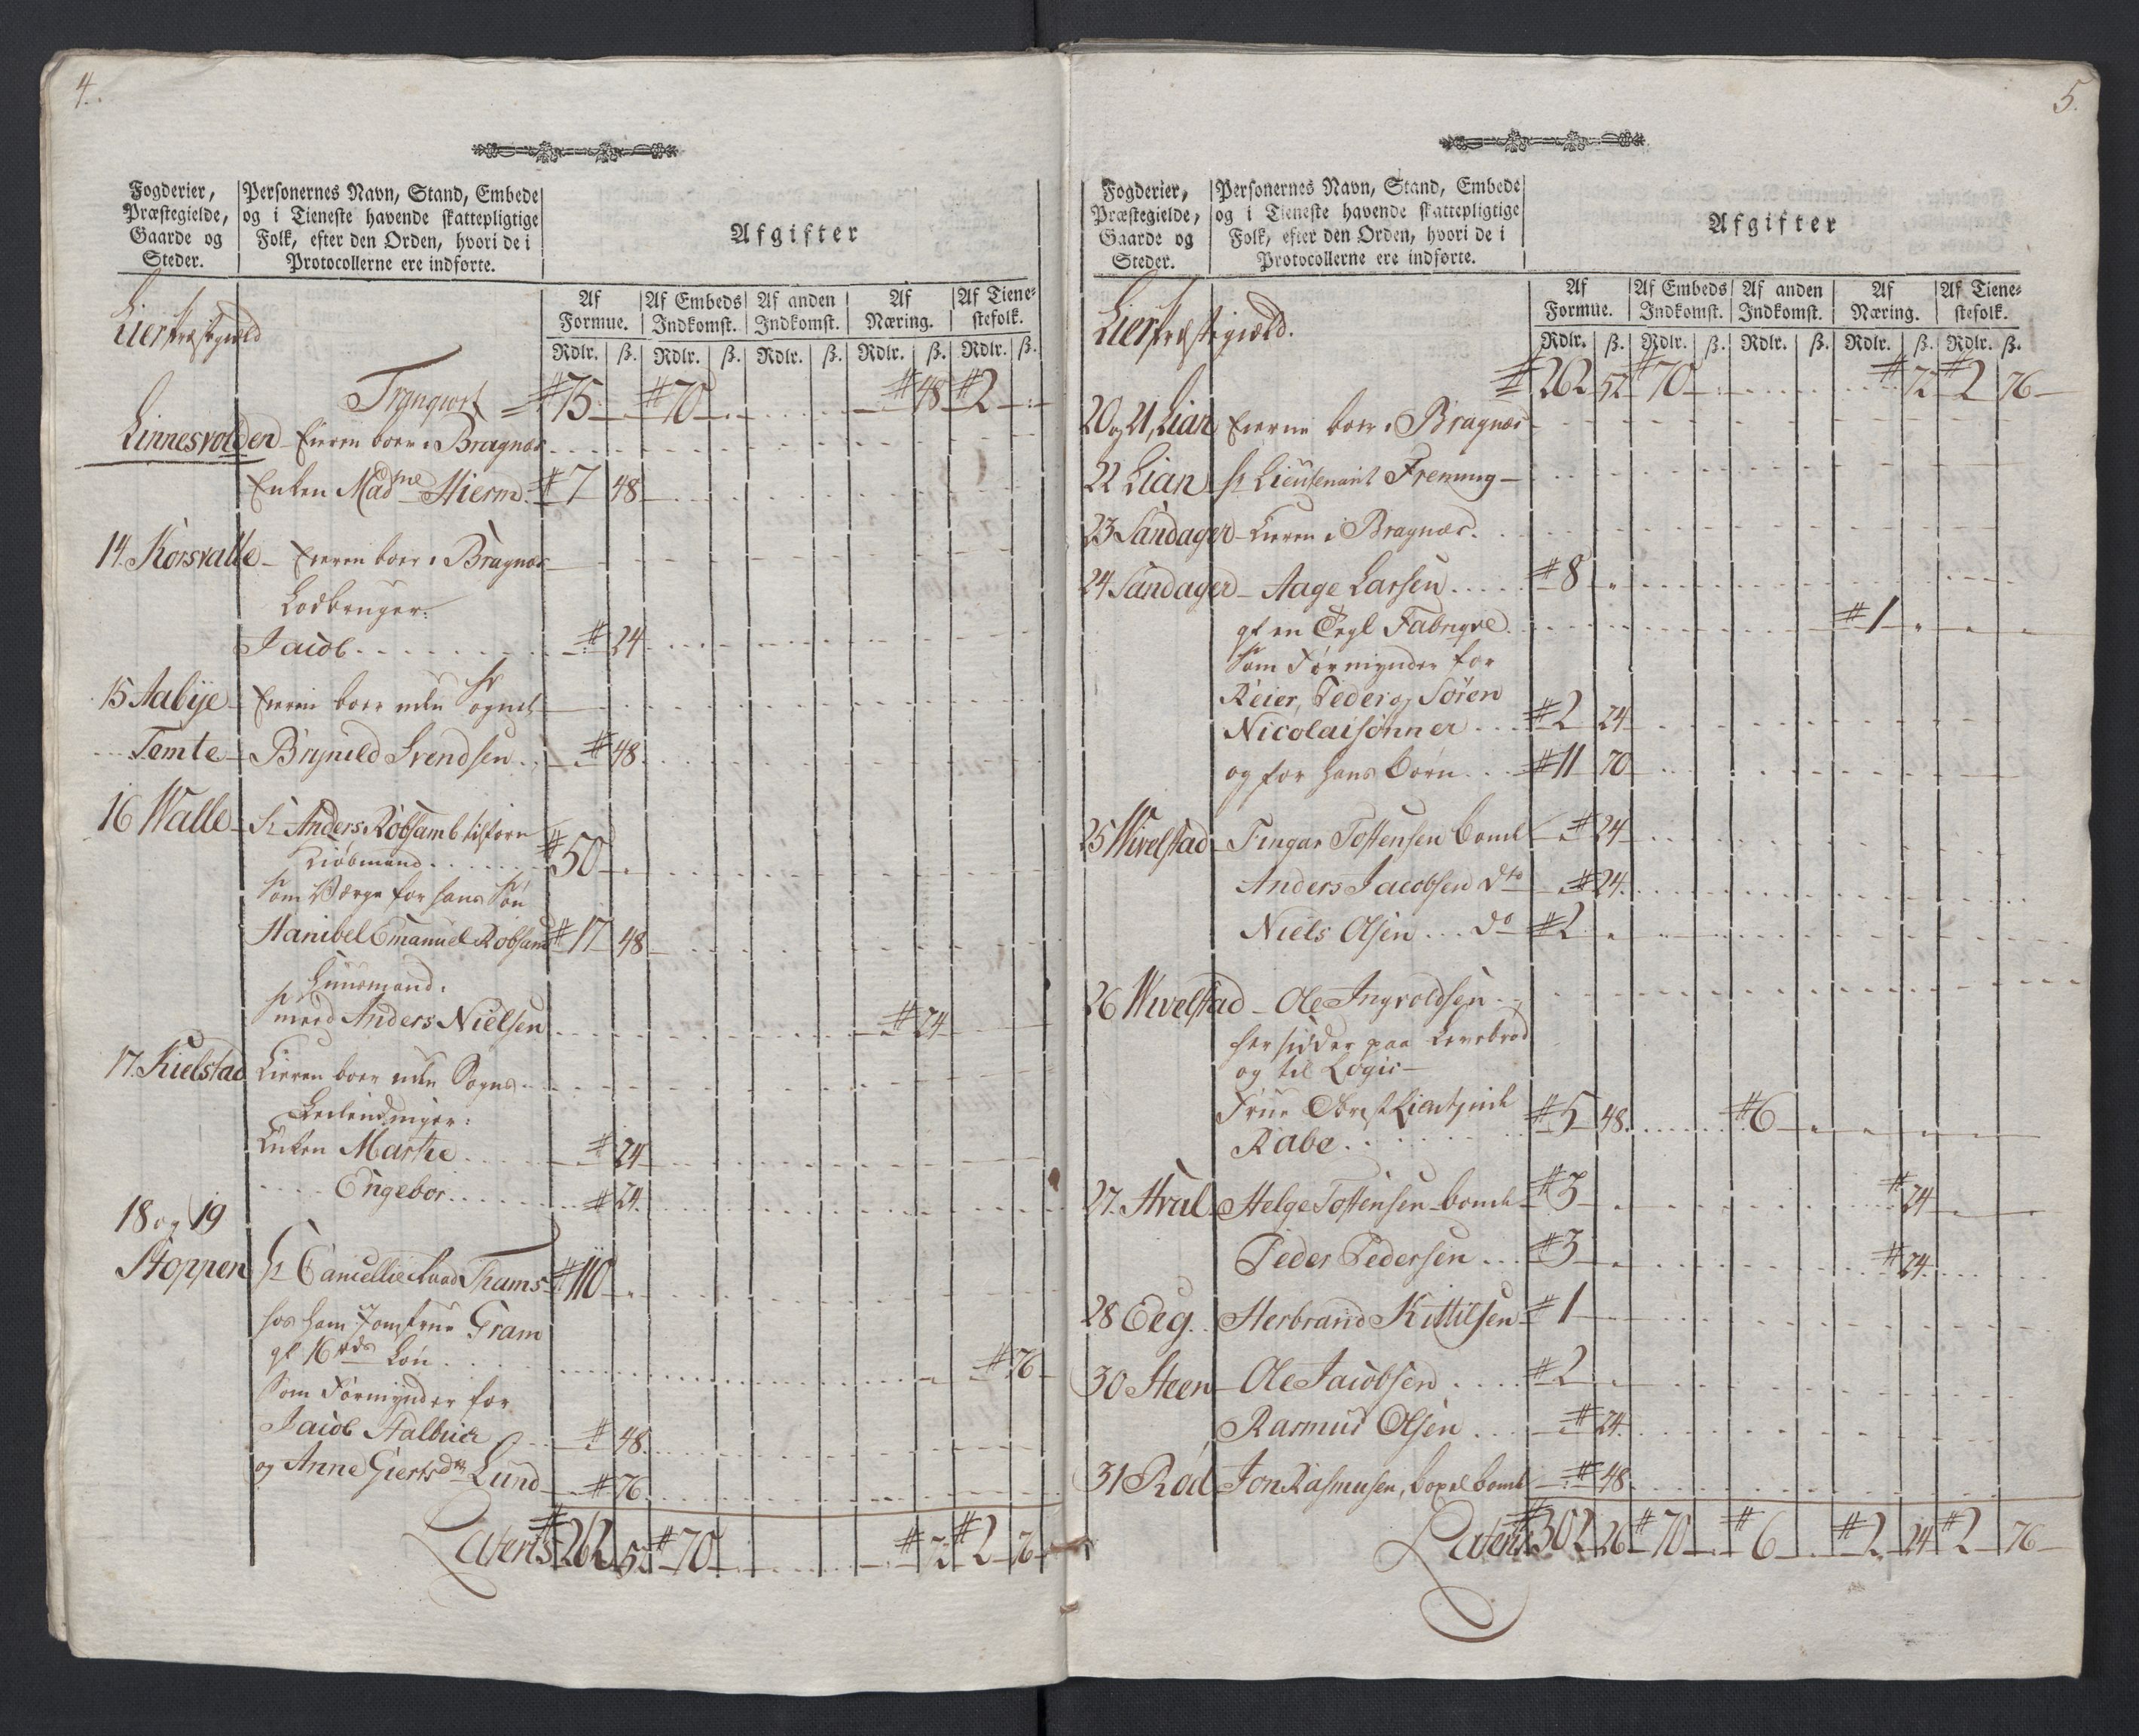 4.
Fogderier, Præstegielde, Gaarde og Steder.
Personernes Navn, Stand, Embede og i Tieneste havende skattepligtige Folk, efter den Orden, hvori de i Protocollerne ere indførte.
Afgifter
Af Formue. Af Embeds Indkomst. Af anden Indkomst. Af Næring. Af Tienestefolk.
Rdlr. ß. Rdlr. ß. Rdlr. ß. Rdlr. ß. Rdlr. ß.
Lier Præstegield
Transport # 75 # 70 # 48 # 2
Linnesvolden Eieren boer i Bragnæs
Enken Mad^me Hierm # 7 48
14. Korsvalle Eieren boer i Bragnæs
Lodbruger:
Jacob # 24
15 Aabye Eieren boer uden Sognet
Tomte Brynild Svendsen # 48
16 Walle Hr Anders Robsamb tilforn
Kiøbmand # 50
Som Værge for hans Søn
Hanibel Emanuel Robsamb # 17 48
Huusmand:
Smed Anders Nielsen # 24
17. Kielstad Eieren boer uden Sogned
Leilendinger:
Enken Marthe # 24
Engebor # 24
18 og 19
Stoppen Hr Cancellie Raad Thams # 110
hos ham Jomfrue Gram
gl 16 rds Løn # 76
Som Formynder for
Jacob Halbuer # 48
og Anne Giertsd^tr Lund # 76
Lateris # 262 52 # 70 # 72 # 2 76
5.
Fogderier, Præstegielde, Gaarde og Steder.
Personernes Navn, Stand, Embede og i Tieneste havende skattepligtige Folk, efter den Orden, hvori de i Protocollerne ere indførte.
Afgifter
Af Formue. Af Embeds Indkomst. Af anden Indkomst. Af Næring. Af Tienestefolk.
Rdlr. ß. Rdlr. ß. Rdlr. ß. Rdlr. ß. Rdlr. ß.
Lier Præstegield.
# 262 52 # 70 # 72 # 2 76
20 og 21, Lian Eierne boer i Bragnæs
22 Lian Hr Lieutenant Frenning
23 Sandager Eieren i Bragnæs.
24 Sandager Aage Larsen # 8
gl en Tegl Fabrique # 1
Som Formynder for
Reier, Peder og Søren
Nicolaisønner # 2 24
og for hans Børn # 11 70
25 Wivelstad Tingar Tostensen bonde # 24
Anders Jacobsen d^to # 24
Niels Olsen d^o # 2
26 Wivelstad Ole Ingvoldsen
her sidder paa Levebrød
og til Logie
Frue Obrist Lieutnint
Rabe # 5 48 # 6
27. Hval Helge Tostensen bonde # 3 # 24
Peder Pedersen # 3 # 24
28 Eeg Herbrand Kittilsen # 1
30 Steen Ole Jacobsen # 2
Rasmus Olsen # 24
31 Rød Jon Rasmusen, bonde # 48
Lateris # 302 26 # 70 # 6 # 2 24 # 2 76